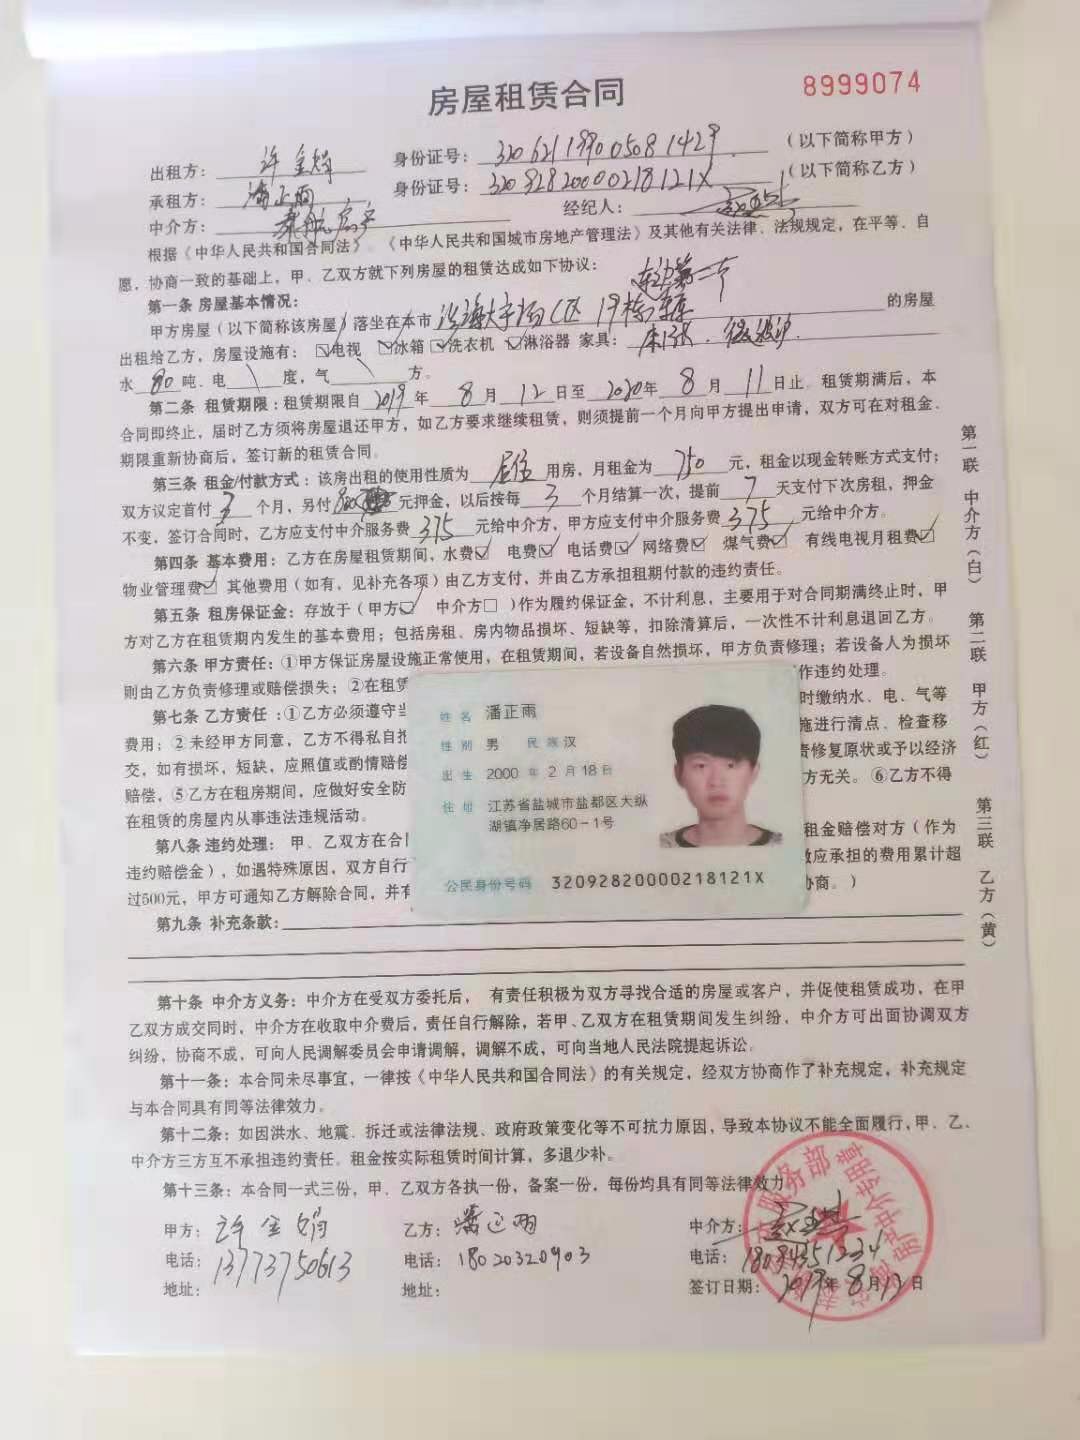 房屋租赁合同
8999074
出租方： 许金娟 身份证号： 320621199005081429 （以下简称甲方）
承租方： 潘正雨 身份证号： 32092820000218121X （以下简称乙方）
中介方： 经纪人：
根据《中华人民共和国合同法》、《中华人民共和国城市房地产管理法》及其他有关法律、法规规定，在平等、自
愿，协商一致的基础上，甲、乙双方就下列房屋的租赁达成如下协议：
第一条 房屋基本情况：
甲方房屋（以下简称该房屋）落坐在本市 的房屋
出租给乙方，房屋设施有： ☑电视 ☑冰箱 ☑洗衣机 ☑淋浴器 家具：
水 80 吨、电 \ 度，气 \ 方。
第二条 租赁期限：租赁期限自 2019 年 8 月 12 日至 2020 年 8 月 11 日止。租赁期满后，本
合同即终止，届时乙方须将房屋退还甲方，如乙方要求继续租赁，则须提前一个月向甲方提出申请，双方可在对租金、
期限重新协商后，签订新的租赁合同。
第三条 租金/付款方式：该房出租的使用性质为 居住 用房，月租金为 750 元，租金以现金转账方式支付；
双方议定首付 3 个月，另付 800 元押金，以后按每 3 个月结算一次，提前 7 天支付下次房租，押金
不变，签订合同时，乙方应支付中介服务费 375 元给中介方，甲方应支付中介服务费 375 元给中介方。
第四条 基本费用：乙方在房屋租赁期间，水费☑ 电费☑ 电话费☑ 网络费☑ 煤气费☑ 有线电视月租费☑
物业管理费☑ 其他费用（如有，见补充各项）由乙方支付，并由乙方承担租期付款的违约责任。
第五条 租房保证金：存放于（甲方☑ 中介方□ ）作为履约保证金，不计利息，主要用于对合同期满终止时，甲
方对乙方在租赁期内发生的基本费用；包括房租、房内物品损坏、短缺等，扣除清算后，一次性不计利息退回乙方。
第六条 甲方责任：①甲方保证房屋设施正常使用，在租赁期间，若设备自然损坏，甲方负责修理；若设备人为损坏
则由乙方负责修理或赔偿损失；②在租赁 作违约处理。
第七条 乙方责任：①乙方必须遵守当 时缴纳水、电、气等
费用；②未经甲方同意，乙方不得私自拆 施进行清点、检查移
交，如有损坏，短缺，应照值或酌情赔偿 责修复原状或予以经济
赔偿，⑤乙方在租房期间，应做好安全防 方无关。⑥乙方不得
在租赁的房屋内从事违法违规活动。
第八条 违约处理： 甲、乙双方在合同 租金赔偿对方（作为
违约赔偿金），如遇特殊原因，双方自行 应承担的费用累计超
过500元，甲方可通知乙方解除合同，并有 协商。）
姓名 潘正雨
性别 男 民族 汉
出生 2000 年 2 月 18 日
住址 江苏省盐城市盐都区大纵
湖镇净居路60-1号
公民身份号码 32092820000218121X
第九条 补充条款：
第十条 中介方义务：中介方在受双方委托后， 有责任积极为双方寻找合适的房屋或客户，并促使租赁成功，在甲
乙双方成交同时，中介方在收取中介费后，责任自行解除，若甲、乙双方在租赁期间发生纠纷，中介方可出面协调双方
纠纷，协商不成，可向人民调解委员会申请调解，调解不成，可向当地人民法院提起诉讼。
第十一条：本合同未尽事宜，一律按《中华人民共和国合同法》的有关规定，经双方协商作了补充规定，补充规定
与本合同具有同等法律效力。
第十二条：如因洪水、地震、拆迁或法律法规、政府政策变化等不可抗力原因，导致本协议不能全面履行，甲、乙、
中介方三方互不承担违约责任。租金按实际租赁时间计算，多退少补。
第十三条：本合同一式三份，甲、乙双方各执一份，备案一份，每份均具有同等法律效力
甲方： 许金娟 乙方： 潘正雨 中介方：
电话： 13773750613 电话： 18020320903 电话： 18084351234
地址： 地址： 签订日期： 2019年 8月 13日
第一联 中介方（白） 第二联 甲方（红） 第三联 乙方（黄）